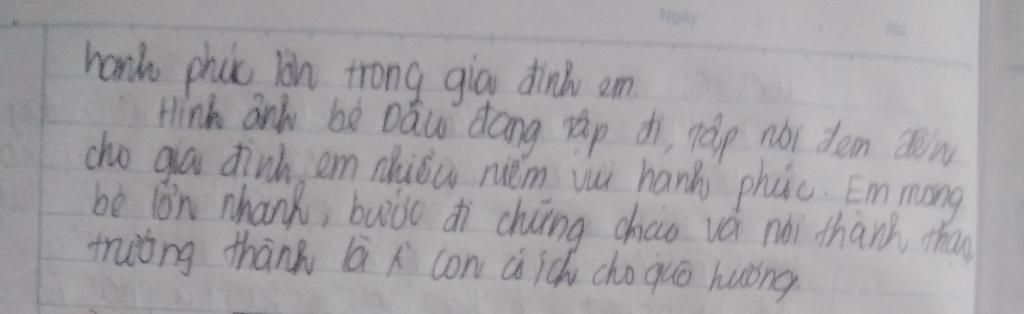 Ngày
No
hạnh phúc lớn trong gia đình em.
Hình ảnh bé Dâu đang tập đi, tập nói đem đến
cho gia đình em nhiều niềm vui hạnh phúc. Em mong
bé lớn nhanh, bước đi chững chạc và nói thành thạo,
trưởng thành là 1 con có ích cho quê hương.